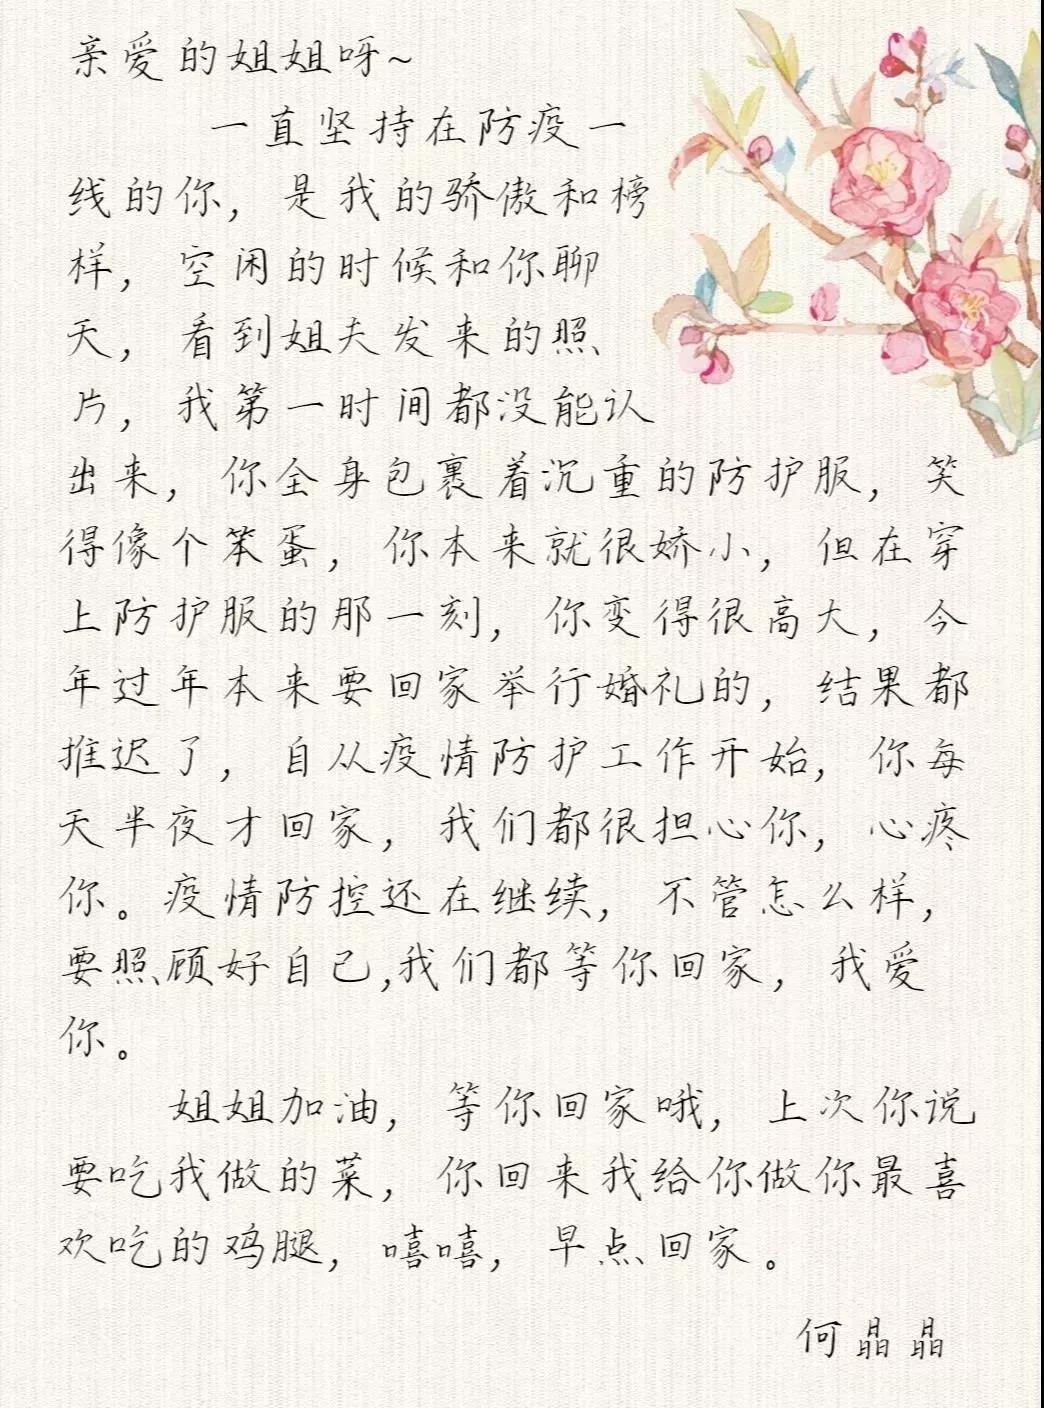 亲爱的姐姐呀~
一直坚持在防疫一
线的你，是我的骄傲和榜
样，空闲的时候和你聊
天，看到姐夫发来的照
片，我第一时间都没能认
出来，你全身包裹着沉重的防护服，笑
得像个笨蛋，你本来就很娇小，但在穿
上防护服的那一刻，你变得很高大，今
年过年本来要回家举行婚礼的，结果都
推迟了，自从疫情防护工作开始，你每
天半夜才回家，我们都很担心你，心疼
你。疫情防控还在继续，不管怎么样，
要照顾好自己,我们都等你回家，我爱
你。
姐姐加油，等你回家哦，上次你说
要吃我做的菜，你回来我给你做你最喜
欢吃的鸡腿，嘻嘻，早点回家。
何晶晶